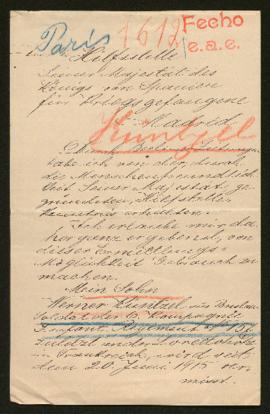 Paris 1612 Fecho
e.a.e.
Hilfsstelle
Seiner Majestät des
Königs von Spanien
für Kriegsgefangene
Madrid
Küntzel
Durch
habe ich von der, durch
die Menschenfreundlich
keit Seiner Majestät ge
Hilfsstelle
Kenntnis erhalten.
Ich erlaube mir da
her ganz ergebenst, von
dieser
Möglichkeit Gebrauch zu
machen.
Mein Sohn
Werner Küntzel aus Breslau
Soldat der 6. Kompagnie
Infant. Regiment
zuletzt
in Frankreich, wird seit
dem 20 Juni 1915 ver
misst.